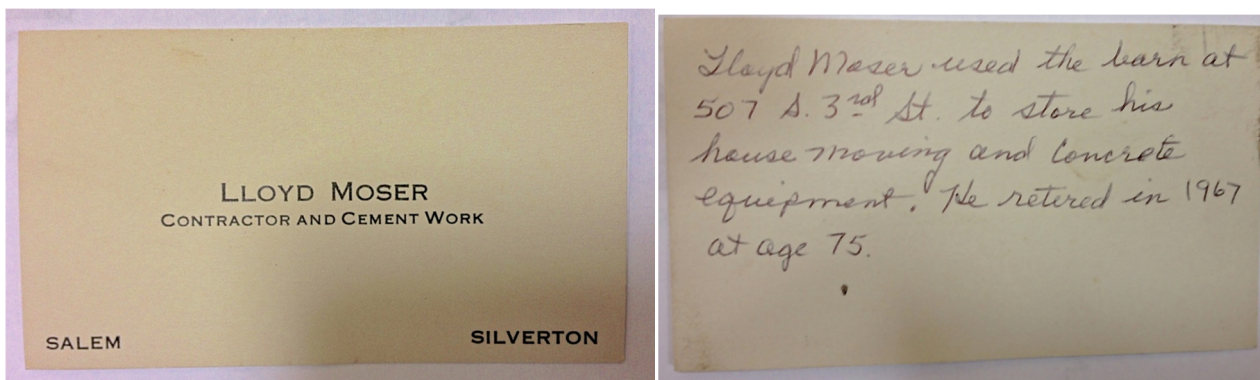 LLOYD MOSER
CONTRACTOR AND CEMENT WORK
SALEM
SILVERTON
Lloyd Moser used the barn at
507 S. 3rd St. to store his
house moving and Concrete
equipment. He retired in 1967
at age 75.